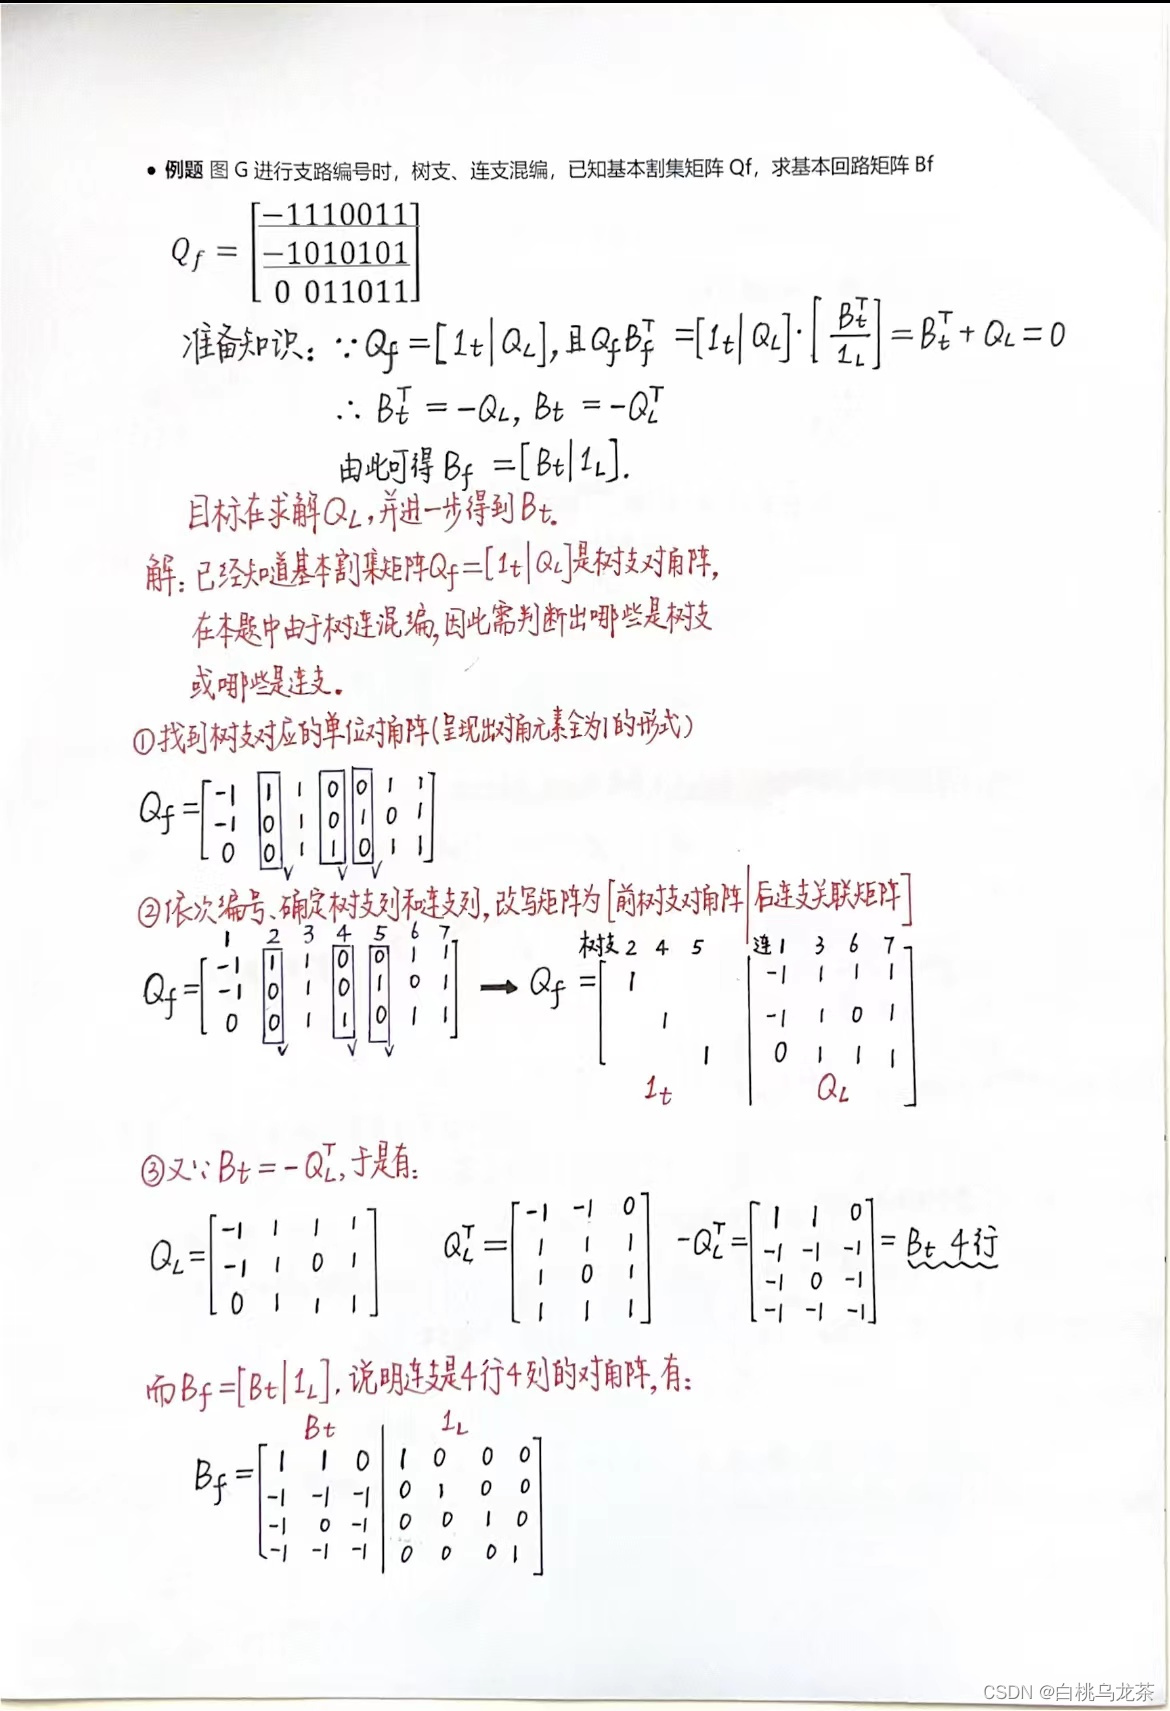 • 例题 图 G 进行支路编号时，树支、连支混编，已知基本割集矩阵 Qf，求基本回路矩阵 Bf
Qf = [−1110011]
[−1010101]
[0 011011]
准备知识：∵ Qf = [1t | QL]，且QfBf^T = [1t | QL]·[Bt^T / 1L] = Bt^T + QL = 0
∴ Bt^T = -QL, Bt = -QL^T
由此可得 Bf = [Bt | 1L].
目标在求解QL，并进一步得到Bt。
解：已经知道基本割集矩阵Qf=[1t | QL]是树支对角阵，
在本题中由于树连混编，因此需判断出哪些是树支
或哪些是连支。
①找到树支对应的单位对角阵(呈现出对角元素全为1的形式)
Qf = [-1 1 1 0 0 1 1
-1 0 1 0 1 0 1
0 0 1 1 0 1 1]
②依次编号、确定树支列和连支列，改写矩阵为[前树支对角阵 | 后连支关联矩阵]
1 2 3 4 5 6 7 树支 2 4 5 连 1 3 6 7
Qf = [-1 1 1 0 0 1 1 → Qf = [1 | -1 1 1 1
-1 0 1 0 1 0 1 1 | -1 1 0 1
0 0 1 1 0 1 1] 1 | 0 1 1 1]
1t QL
③又∵ Bt = -QL^T, 于是有：
QL = [-1 1 1 1 QL^T = [-1 -1 0 -QL^T = [1 1 0 = Bt 4行
-1 1 0 1 1 1 1 -1 -1 -1
0 1 1 1] 1 0 1 -1 0 -1
1 1 1] -1 -1 -1]
而Bf=[Bt | 1L]，说明连支是4行4列的对角阵，有：
Bt 1L
Bf = [1 1 0 | 1 0 0 0
-1 -1 -1 | 0 1 0 0
-1 0 -1 | 0 0 1 0
-1 -1 -1 | 0 0 0 1]
CSDN @白桃乌龙茶